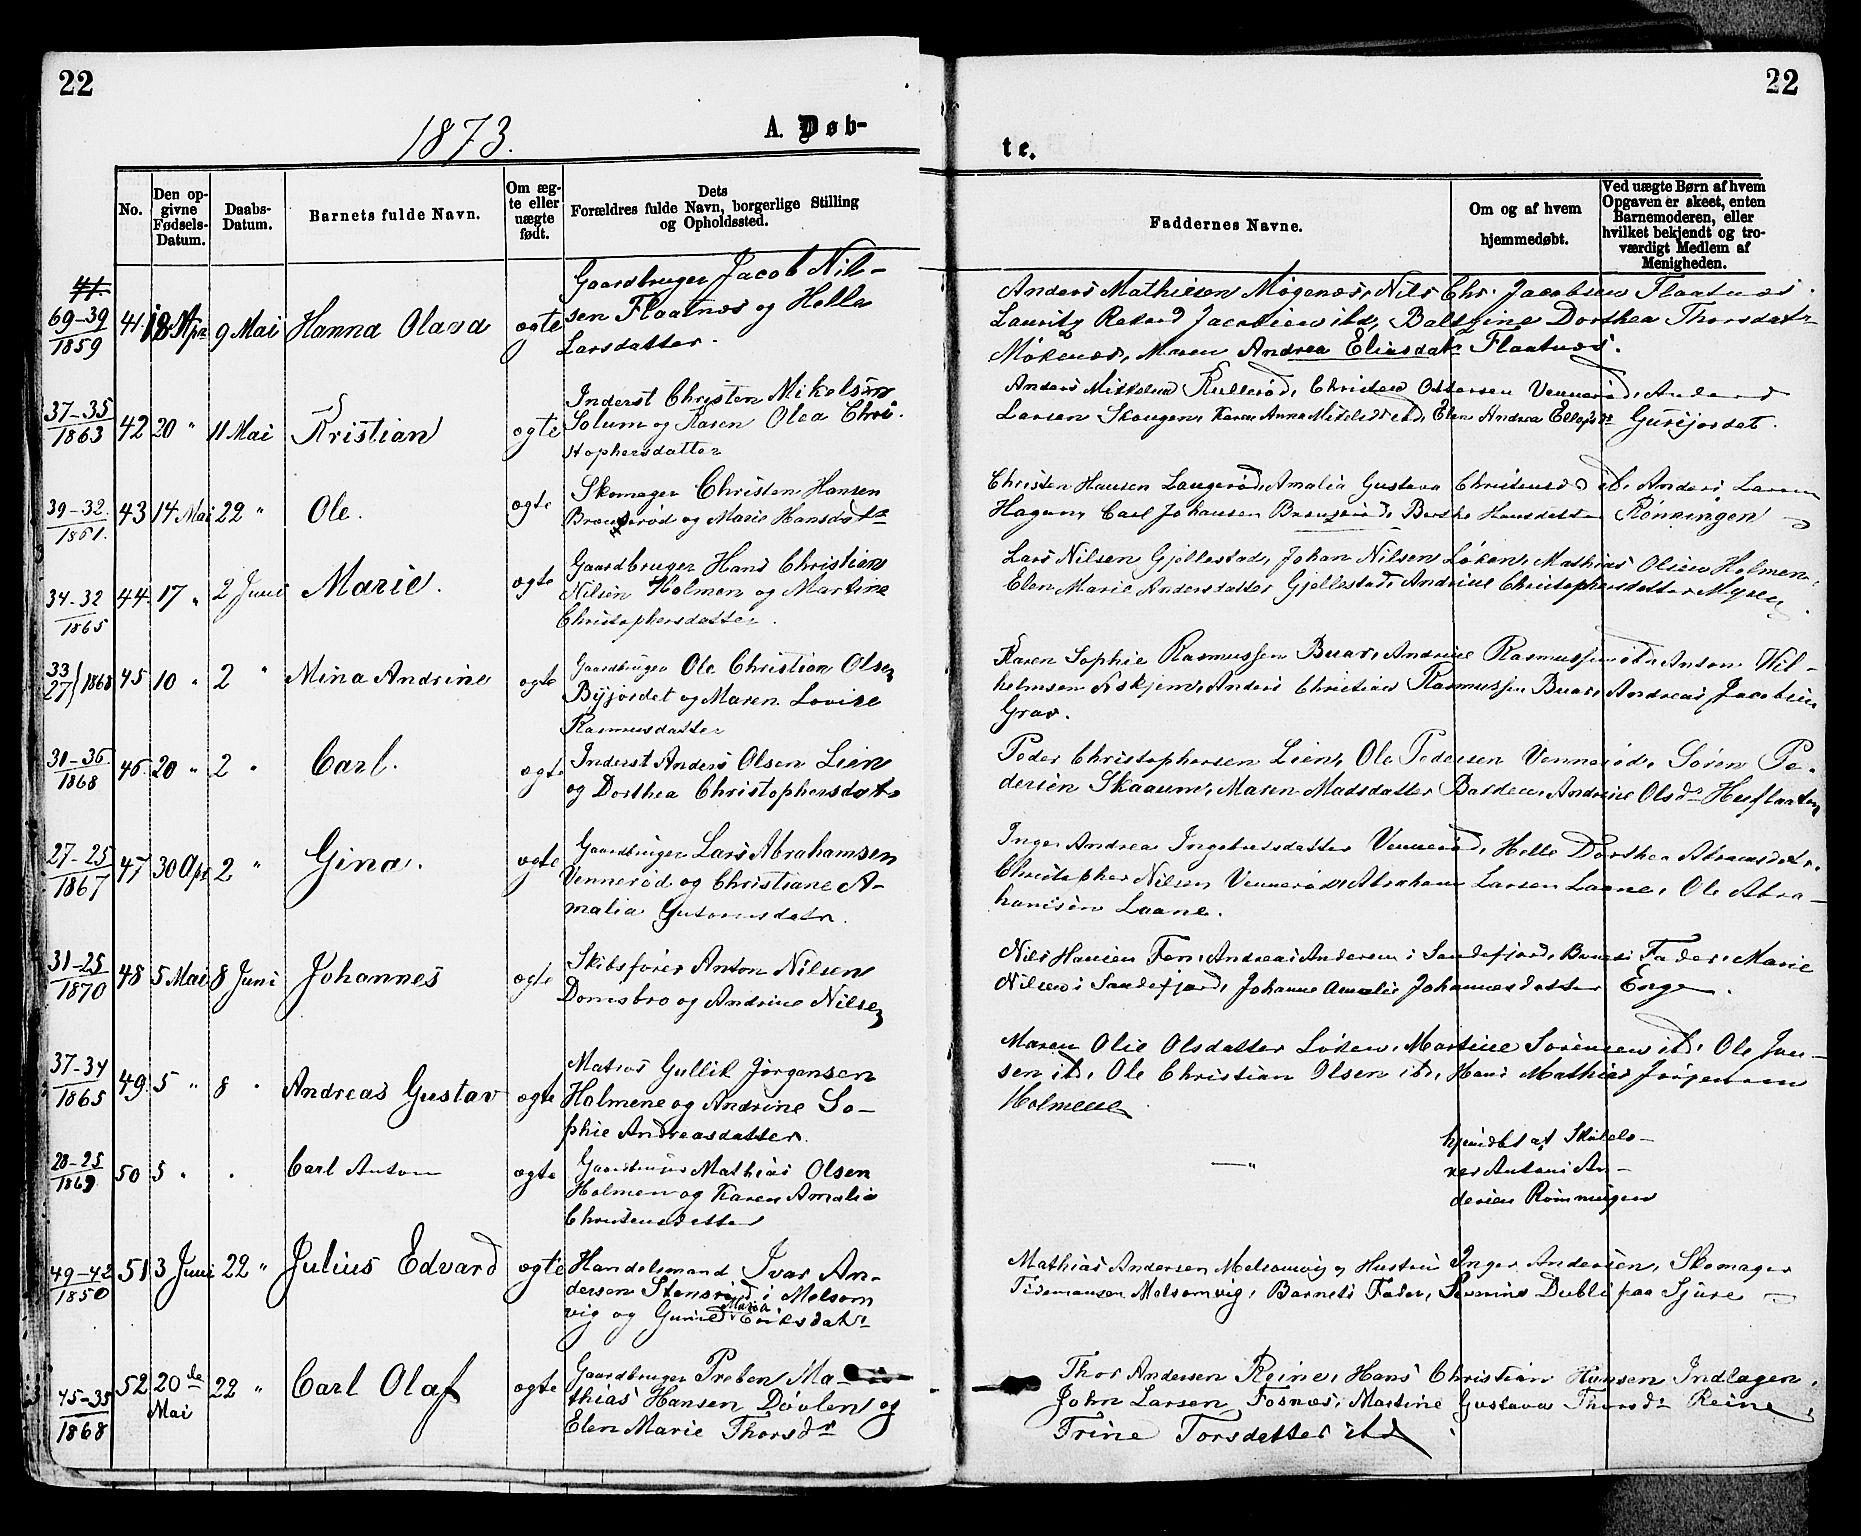 22
22
1873.
A. Døb-
te.
No.
Den op-
givne
Fødsels-
Datum.
Daabs-
Datum.
Barnets fulde Navn.
Om æg-
te eller
uægte
født.
Dets
Forældres fulde Navn, borgerlige Stilling
og Opholdssted.
Faddernes Navne.
Om og af hvem
hjemmedøbt.
Ved uægte Børn af hvem
Opgaven er skeet, enten
Barnemoderen, eller
hvilket bekjendt og tro-
værdigt Medlem af
Menigheden.
41.
69-39
1859
41. 18 Apr 9 Mai Hanna Olava ægte
Gaardbruger Jacob Nil-
sen Flaatnæs og Helle
Larsdatter.
Anders Mathiesen Møgenæs, Nils Chr. Jacobsen Flaatnæs.
Lauritz Jacobsen ibd, Baltzine Dorthea Thorsdatr
Møkenæs, Maren Andrea Eliasdatr Flaatnæs.
37-35
1863
42 20 " 11 Mai Kristian ægte
Inderst Christen Mikelsen
Solum og Karen Olea Chri-
stophersdatter
Anders Mikkelsen Rullerød, Christen Ottersen Vennerød, Anders
Larsen Skougen, Karen Anne Mikkelsdr ibd, Elen Andrea Ellefsdr Gusijordet.
39-32
1861.
43 14 Mai 22 " Ole. ægte
Skomager Christen Hansen
Braus­erød og Marie Hansdatr
Christen Hansen Laugerød, Amalia Gustava Christensd ib, Anders Larsen
Hagen, Carl Johansen Brauserød, Berthe Hansdatter Rønningen
34-32
1865
44 17 " 2 Juni Marie. ægte
Gaardbruger Hans Christian
Nilsen Holmen og Martine
Christophersdatter.
Lars Nilsen Gjellestad, Johan Nilsen Løken, Mathias Olsen Holmen,
Elen Marie Andersdatter Gjellestad, Andrine Christophersdatter Myren.
33
27 } 1868
45 10 " 2 " Mina Andrine ægte
Gaardbruger Ole Christian Olsen
Byjordet og Maren Lovise
Rasmusdatter
Karen Sophie Rasmussen Buar, Andrine Rasmussen ib, Anton Vil-
helmsen Askjem, Anders Christian Rasmussen Buar, Andreas Jacobsen
Grav.
31-36
1868
46 20 " 2 " Carl. ægte
Inderst Anders Olsen Lien
og Dorthea Christophersdatr
Peder Christophersen Lien, Ole Pedersen Vennerød, Søren Pe-
dersen Skaaum, Maren Madsdatter Bardea, Andrine Olsdr
27-25
1867
47 30 Apr 2 " Gina. ægte
Gaardbruger Lars Abrahamsen
Vennerød og Christiane A-
malia Gutormsdatr.
Inger Andrea Ingebretsdatter Vennerød, Helle Dorthea Abramsdatr,
Christopher Nilsen Vennerød, Abraham Larsen Laane, Ole Abra-
hamsen Laane.
31-25
1870
48 5 Mai 8 Juni Johannes ægte
Skibsfører Anton Nilsen
Domsbro og Andrine Nilsen
Nils Hansen Fen, Andreas Andersen i Sandefjord, Barnets Fader, Marie
Nilsen i Sandefjord, Johanne Amalie Johannesdatter Enge.
37-34
1865
49. 5 " 8 " Andreas Gustav ægte
Matros Gullik Jørgensen
Holmene og Andrine So-
phie Andreasdatter.
Maren Olie Olsdatter Løken, Martine Sørensen ibd, Ole Jan-
sen ibd, Ole Christian Olsen ibd, Hans Mathias Jørgensen
Holmene
28-25
1869
50 5 " . Carl Anton ægte
Gaardbruger Mathias Olsen
Holmen og Karen Amalie
Christensdatter
—"
hjemdbt af Skolelæ-
rer Antoni An-
dersen Rønningen
49-42
1850
51 3 Juni 22 " Julius Edvard ægte
Handelsmand Ivar An-
dersen Stensrød i Melsom
vig og Gunild Maria Eriksdatr
Mathias Andersen Melsomvig og Hustru Inger Andersen, Skomager
Tidemansen Melsomvig, Barnets Fader, Dubli paa Sjure
45-35
1868
52 20de Mai 22 " Carl Olaf ægte
Gaardbruger Preben Ma-
thias Hansen Døvlen og
Elen Marie Thorsdr
Thor Andersen Reine, Hans Christian Hansen Indlagen,
John Larsen Fosnæs, Martine Gustava Thorsdr Reine,
Trine Torsdatter ibd